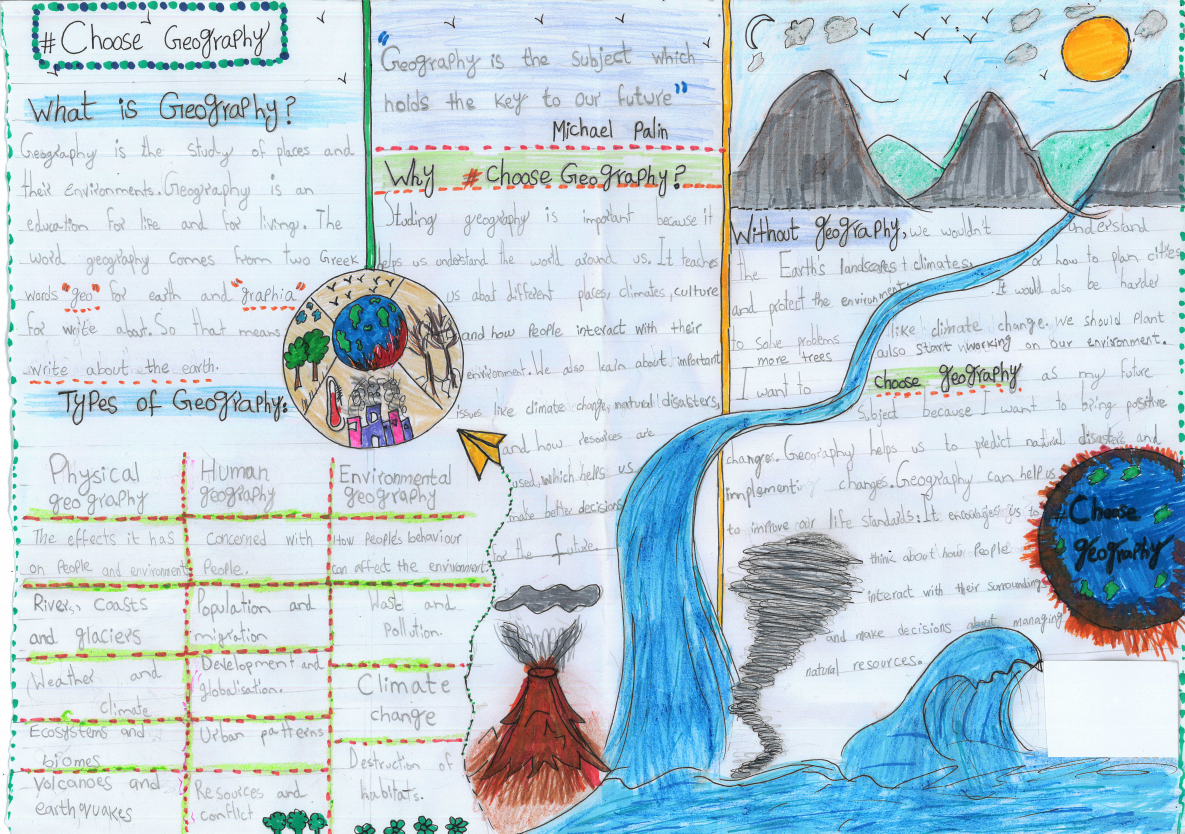 #Choose Geography
What is Geography?
Geography is the study of places and
their environments. Geography is an
education for life and for living. The
word geography comes from two Greek
words "geo" for earth and "graphia"
for write about. So that means
write about the earth.
Types of Geography:
Physical
geography
The effects it has
on People and environment
Rivers, coasts
and glaciers
Weather and
Climate
Ecosystems and
biomes
Volcanoes and
earthquakes
Human
geography
Concerned with
People.
Population and
migration
Development and
globalisation.
Urban patterns
Resources and
conflict
Environmental
geography
How People's behaviour
can affect the environment
Waste and
Pollution.
Climate
change
Destruction of
habitats.
"Geography is the subject which
holds the key to our future"
Michael Palin
Why #Choose Geography?
Studing geography is important because it
helps us understand the world around us. It teaches
us about different places, climates, culture
and how People interact with their
environment. We also learn about important
issues like climate change, natural disasters,
and how resources are
used, which helps us
make better decisions
for the future.
Without geography, we wouldn't understand
the Earth's landscapes + climates, or how to plan cities
and protect the environment. It would also be harder
to solve problems like climate change. We should Plant
more trees also start working on our environment.
I want to choose geography as my future
Subject because I want to bring positive
changes. Geography helps us to predict natural disasters and
implement changes. Geography can help us
to improve our life standards. It encourages us to
think about how People
interact with their surroundings
and make decisions about managing
natural resources.
#Choose
geography